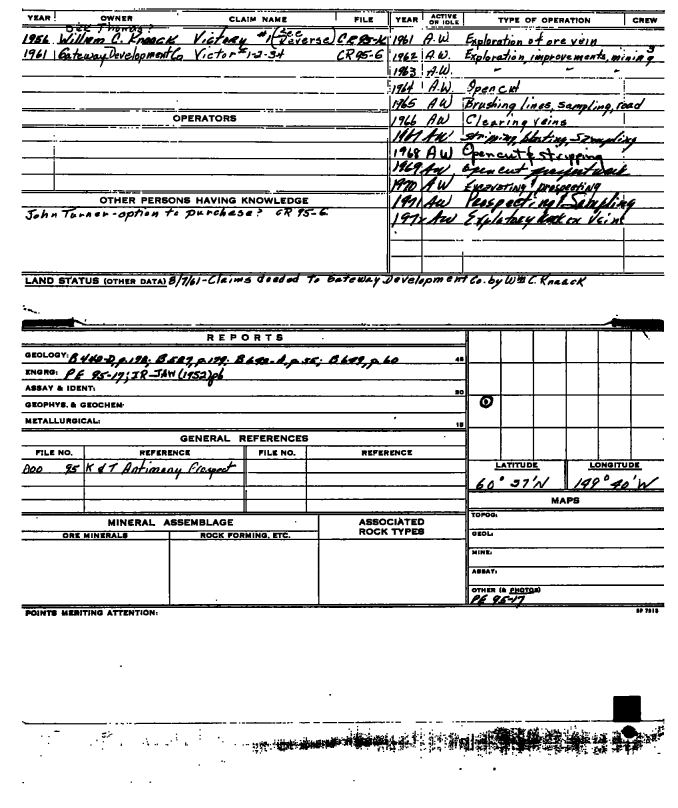 YEAR OWNER CLAIM NAME FILE YEAR ACTIVE OR IDLE TYPE OF OPERATION CREW
See Thomas?
1956 William C. Knaack Victory #1 (See reverse) CR 95-K 1961 A.W. Exploration of ore vein
1961 Gateway Development Co Victor #1-2-3+ CR 95-6 1962 A.W. Exploration, improvements, mining 3
1963 A.W. " "
1964 A.W. Opencut
1965 AW Brushing lines, sampling, road
OPERATORS 1966 AW Clearing veins
1967 AW Stripping, blasting, Sampling
1968 AW Opencut & stripping
1969 AW opencut prospect work
1970 AW Excavating! prospecting
OTHER PERSONS HAVING KNOWLEDGE 1971 AW Prospecting! Sampling
John Turner-option to purchase? CR 95-6 1972 AW Explatory work on Veins
LAND STATUS (OTHER DATA) 8/7/61-Claims deeded To Gateway Development Co. by Wm C. Knaack
REPORTS
GEOLOGY: B 440-D, p.178; B 587, p.179; B 642-A, p.35; B 649, p 60 45
ENGRG: PE 95-17; IR-JAW (1952) p6
ASSAY & IDENT: 30
GEOPHYS. & GEOCHEM:
METALLURGICAL: 15
GENERAL REFERENCES
FILE NO. REFERENCE FILE NO. REFERENCE
95 K & T Antimony Prospect
LATITUDE LONGITUDE
60° 37'N 149° 40'W
MAPS
MINERAL ASSEMBLAGE ASSOCIATED ROCK TYPES
ORE MINERALS ROCK FORMING, ETC.
TOPOG:
GEOL:
MINE:
ASSAY:
OTHER (& PHOTOS)
PE 95-17
POINTS MERITING ATTENTION: